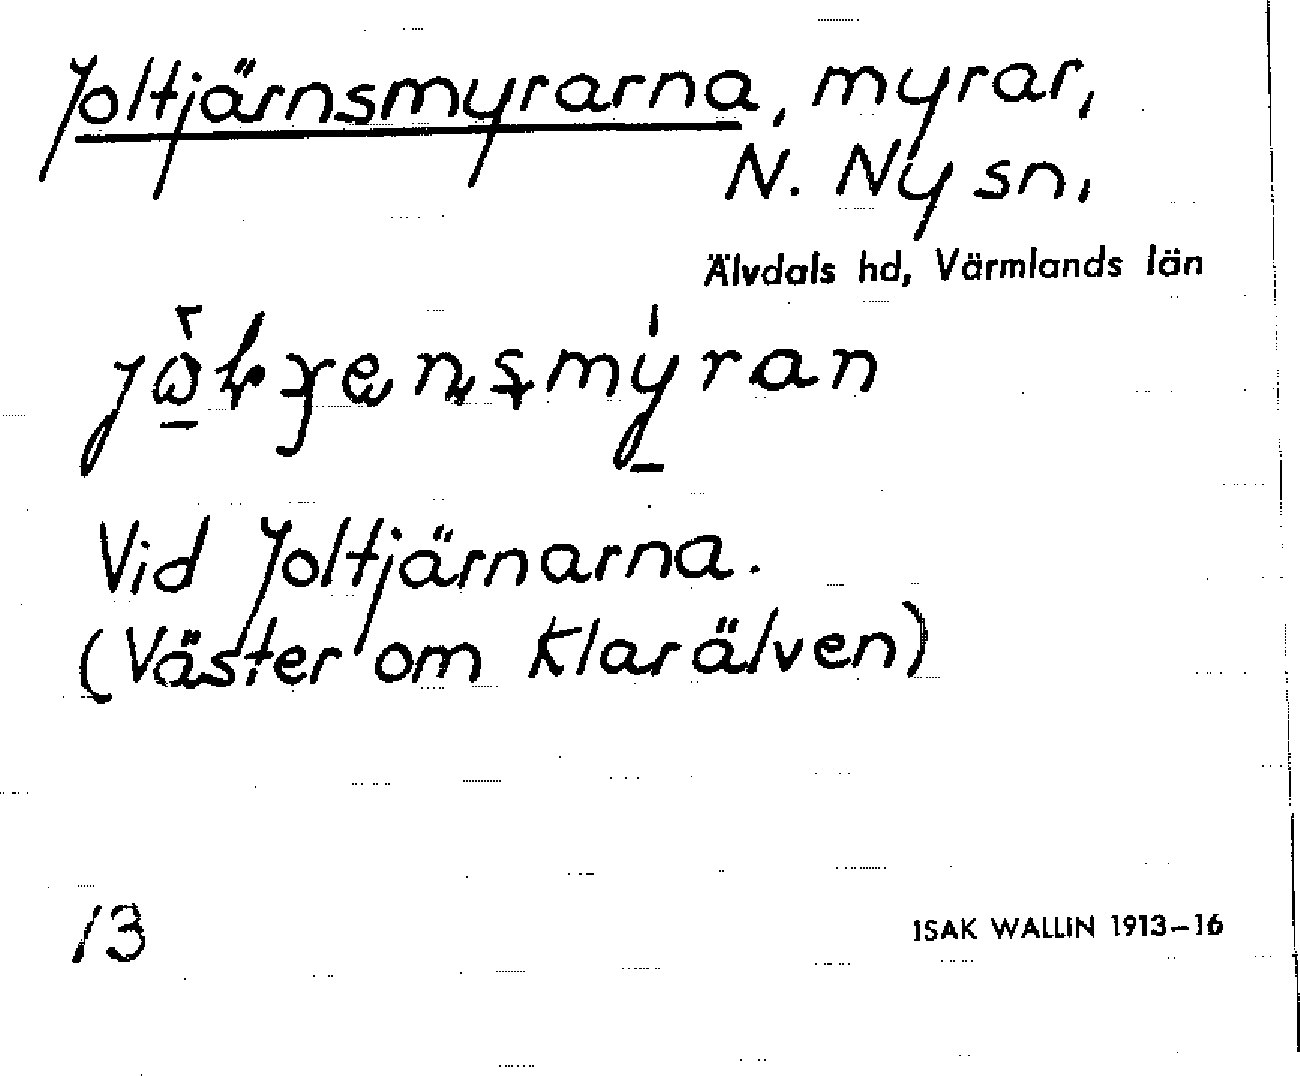 Joltjärnsmyrarna, myrar,
N. Ny sn,
Älvdals hd, Värmlands län
Vid Joltjärnarna.
(Väster om Klarälven)
13
ISAK WALLIN 1913–16